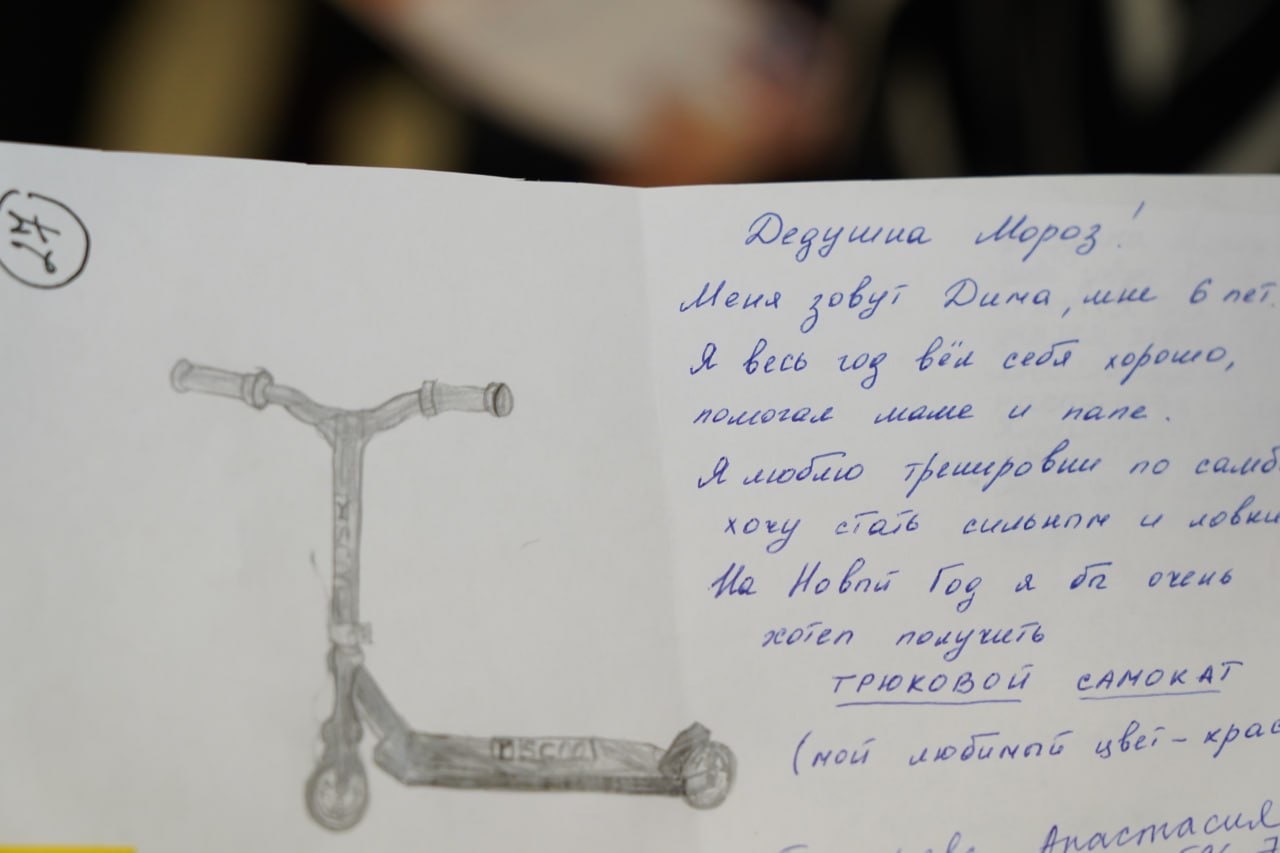 Дедушка Мороз!
Меня зовут Дима, мне 6 лет.
Я весь год вёл себя хорошо,
помогал маме и папе.
Я люблю тренировки по самб
хочу стать сильным и ловки
На Новый Год я бы очень
хотел получить
ТРЮКОВОЙ САМОКАТ
(мой любимый цвет – крас
Анастасия